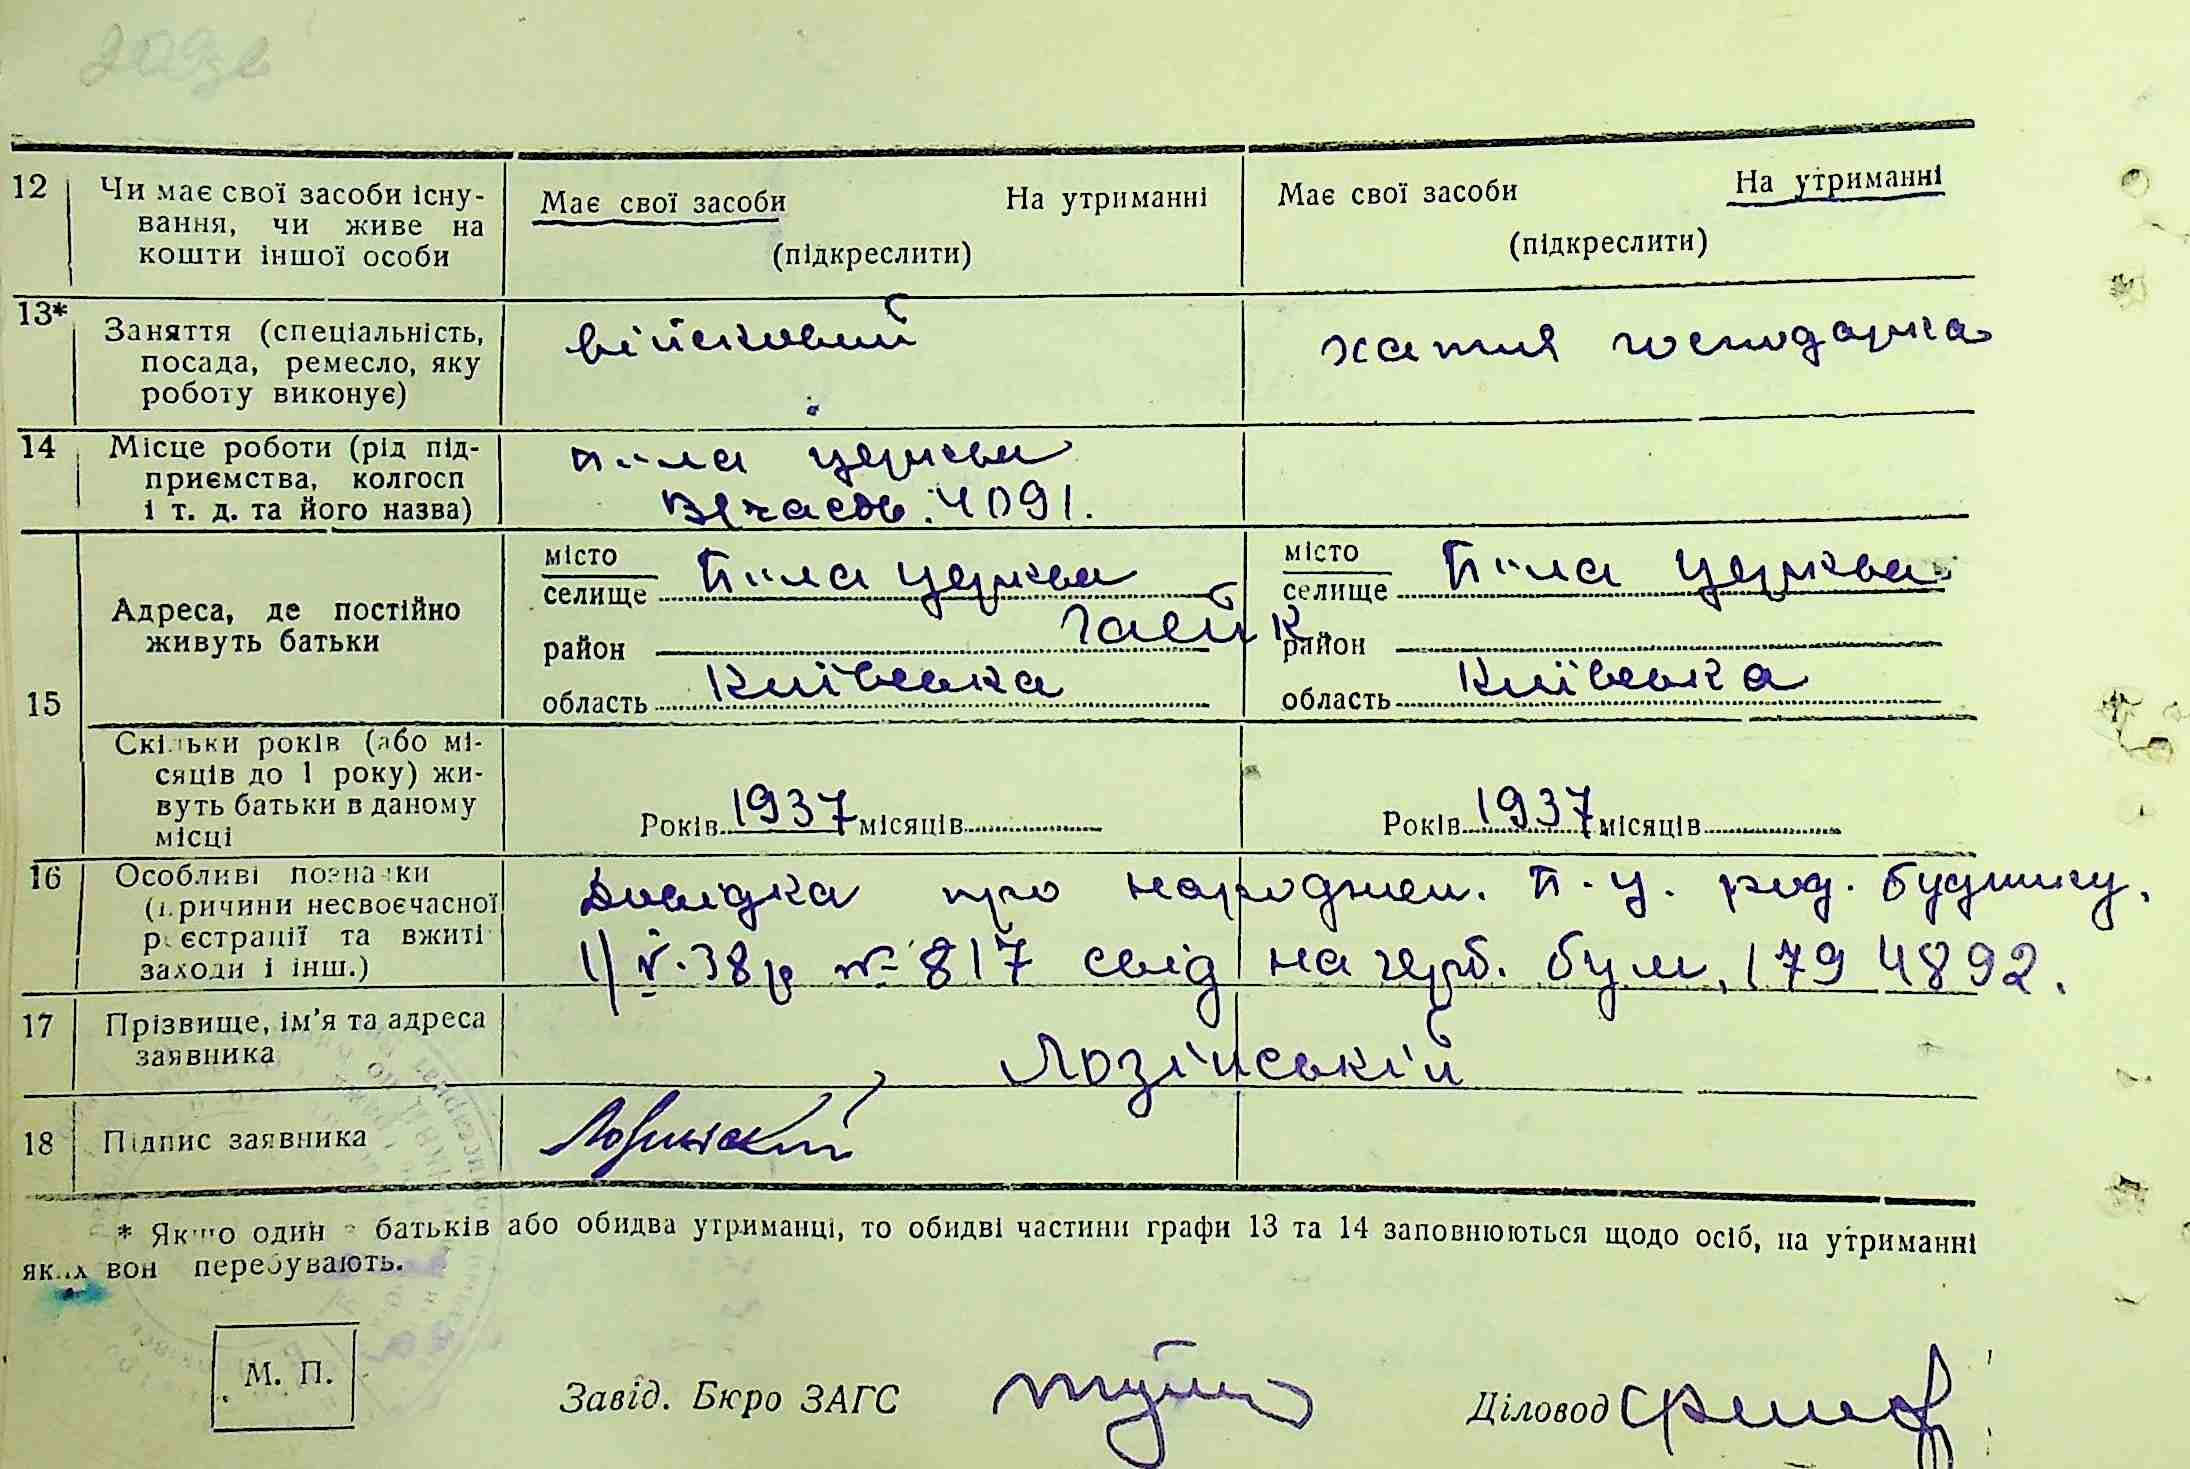 12 Чи має свої засоби існу- Має свої засоби На утриманні Має свої засоби На утриманні
вання, чи живе на
кошти іншої особи (підкреслити) (підкреслити)
13* Заняття (спеціальність, військовий хатня господарка
посада, ремесло, яку
роботу виконує)
14 Місце роботи (рід під- Біла церква
приємства, колгосп
і т. д. та його назва) В/часть. 4091.
місто Біла церква місто Біла церква
селище селище
Адреса, де постійно
живуть батьки район Гаєйк район
15 область Київська область Київська
Скільки років (або мі-
сяців до 1 року) жи-
вуть батьки в даному Років 1937 місяців Років 1937 місяців
місці
16 Особливі позначки Довідка про народжен. Б-Ц. род. будинку.
(причини несвоєчасної
реєстрації та вжиті 1/V.38р № 817 свід на герб. бум. 1794892.
заходи і інш.)
17 Прізвище, ім'я та адреса Лозінській
заявника
18 Підпис заявника Лозинский
* Якщо один з батьків або обидва утриманці, то обидві частини графи 13 та 14 заповнюються щодо осіб, на утриманні
яких вон перебувають.
М. П. Завід. Бюро ЗАГС Діловод